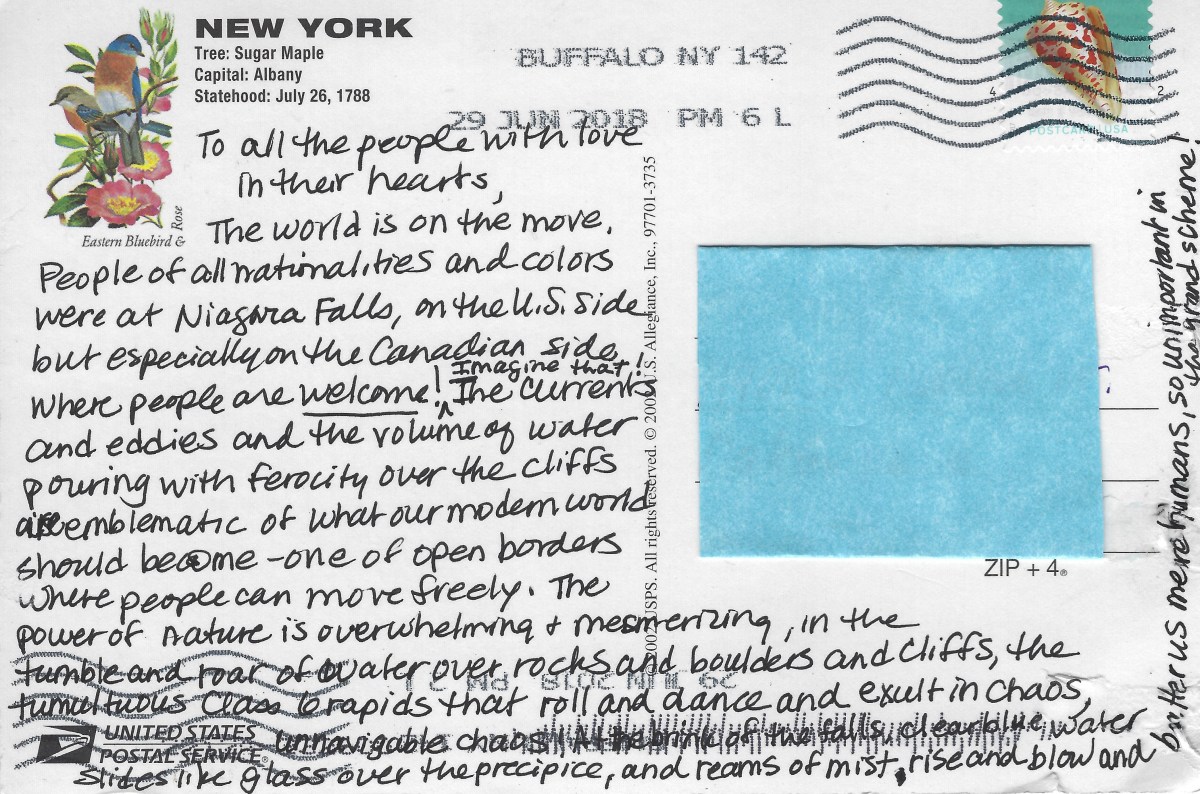 NEW YORK
Tree: Sugar Maple
Capital: Albany
Statehood: July 26, 1788
Eastern Bluebird & Rose
BUFFALO NY 142
29 JUN 2018 PM 6 L
4
2
POSTCARD USA
To all the people with love
in their hearts,
The world is on the move.
People of all nationalities and colors
were at Niagara Falls, on the U.S. side
but especially on the Canadian side,
where people are welcome! Imagine that! The currents
and eddies and the volume of water
pouring with ferocity over the cliffs
are emblematic of what our modern world
should become - one of open borders
where people can move freely. The
power of nature is overwhelming + mesmerizing, in the
tumble and roar of water over rocks and boulders and cliffs, the
tumultuous Class 6 rapids that roll and dance and exult in chaos,
unnavigable chaos! At the brink of the falls, clear blue water
slides like glass over the precipice, and reams of mist, rise and blow and
batter us mere humans, so unimportant in
the grand scheme!
© 2002 USPS. All rights reserved. © 2003 U.S. Allegiance, Inc., 97701-3735
ZIP + 4®
29 JUN 2018 PM 2 L
UNITED STATES
POSTAL SERVICE®